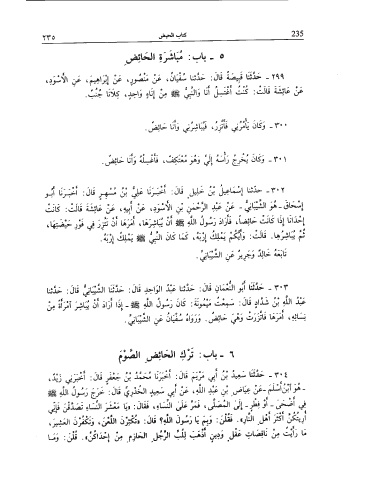 235 كتاب الحيض ٢٣٥
٥ ـ باب: مُبَاشَرَةِ الحَائِضِ
٢٩٩ ـ حَدَّثَنَا قَبِيصَةُ قَالَ: حَدَّثَنَا سُفْيَانُ، عَنْ مَنْصُورٍ، عَنْ إِبْرَاهِيمَ، عَنِ الأَسْوَدِ،
عَنْ عَائِشَةَ قَالَتْ: كُنْتُ أَغْتَسِلُ أَنَا وَالنَّبِيُّ ﷺ مِنْ إِنَاءٍ وَاحِدٍ، كِلَانَا جُنُبٌ.
٣٠٠ ـ وَكَانَ يَأْمُرُنِي فَأَتَّزِرُ، فَيُبَاشِرُنِي وَأَنَا حَائِضٌ.
٣٠١ ـ وَكَانَ يُخْرِجُ رَأْسَهُ إِلَيَّ وَهُوَ مُعْتَكِفٌ، فَأَغْسِلُهُ وَأَنَا حَائِضٌ.
٣٠٢ ـ حدثنا إِسْمَاعِيلُ بْنُ خَلِيلٍ قَالَ: أَخْبَرَنَا عَلِيُّ بْنُ مُسْهِرٍ قَالَ: أَخْبَرَنَا أَبُو
إِسْحَاقَ ـ هُوَ الشَّيْبَانِيُّ ـ عَنْ عَبْدِ الرَّحْمٰنِ بْنِ الأَسْوَدِ، عَنْ أَبِيهِ، عَنْ عَائِشَةَ قَالَتْ: كَانَتْ
إِحْدَانَا إِذَا كَانَتْ حَائِضاً، فَأَرَادَ رَسُولُ اللَّهِ ﷺ أَنْ يُبَاشِرَهَا، أَمَرَهَا أَنْ تَتَّزِرَ فِي فَوْرِ حَيْضَتِهَا،
ثُمَّ يُبَاشِرُهَا. قَالَتْ: وَأَيُّكُمْ يَمْلِكُ إِرْبَهُ، كَمَا كَانَ النَّبِيُّ ﷺ يَمْلِكُ إِرْبَهُ.
تَابَعَهُ خَالِدٌ وَجَرِيرٌ عَنِ الشَّيْبَانِيِّ.
٣٠٣ ـ حَدَّثَنَا أَبُو النُّعْمَانِ قَالَ: حَدَّثَنَا عَبْدُ الوَاحِدِ قَالَ: حَدَّثَنَا الشَّيْبَانِيُّ قَالَ: حَدَّثَنَا
عَبْدُ اللَّهِ بْنُ شَدَّادٍ قَالَ: سَمِعْتُ مَيْمُونَةَ: كَانَ رَسُولُ اللَّهِ ﷺ ـ إِذَا أَرَادَ أَنْ يُبَاشِرَ امْرَأَةً مِنْ
نِسَائِهِ، أَمَرَهَا فَاتَّزَرَتْ وَهِيَ حَائِضٌ. وَرَوَاهُ سُفْيَانُ عَنِ الشَّيْبَانِيِّ.
٦ ـ باب: تَرْكِ الحَائِضِ الصَّوْمَ
٣٠٤ ـ حَدَّثَنَا سَعِيدُ بْنُ أَبِي مَرْيَمَ قَالَ: أَخْبَرَنَا مُحَمَّدُ بْنُ جَعْفَرٍ قَالَ: أَخْبَرَنِي زَيْدٌ،
ـ هُوَ ابْنُ أَسْلَمَ ـ عَنْ عِيَاضِ بْنِ عَبْدِ اللَّهِ، عَنْ أَبِي سَعِيدٍ الخُدْرِيِّ قَالَ: خَرَجَ رَسُولُ اللَّهِ ﷺ
فِي أَضْحَى ـ أَوْ فِطْرٍ ـ إِلَى المُصَلَّى، فَمَرَّ عَلَى النِّسَاءِ، فَقَالَ: «يَا مَعْشَرَ النِّسَاءِ تَصَدَّقْنَ فَإِنِّي
أُرِيتُكُنَّ أَكْثَرَ أَهْلِ النَّارِ». فَقُلْنَ: وَبِمَ يَا رَسُولَ اللَّهِ؟ قَالَ: «تُكْثِرْنَ اللَّعْنَ، وَتَكْفُرْنَ العَشِيرَ،
مَا رَأَيْتُ مِنْ نَاقِصَاتِ عَقْلٍ وَدِينٍ أَذْهَبَ لِلُبِّ الرَّجُلِ الحَازِمِ مِنْ إِحْدَاكُنَّ». قُلْنَ: وَمَا